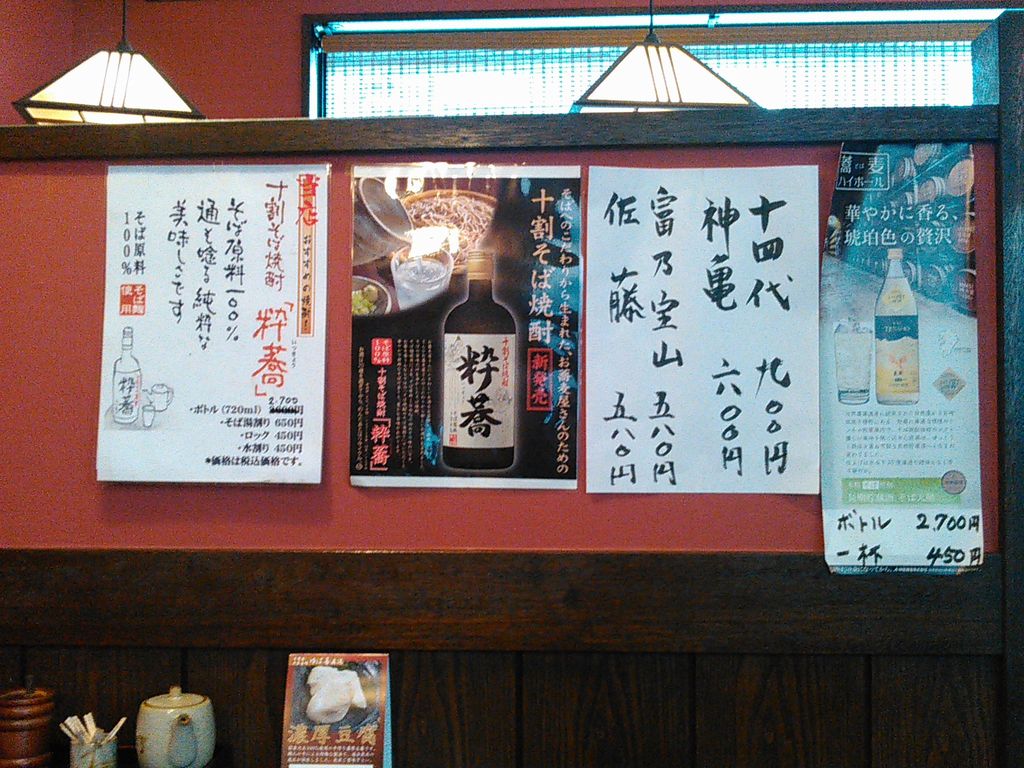 当店
おすすめの焼酎!
十割そば焼酎「粋蕎」
そば原料一〇〇%
通を唸る純粋な
美味しさです
そば原料
100%
そば麹
使用
粋蕎
2,700
・ボトル(720ml)
・そば湯割り 650円
・ロック 450円
・水割り 450円
*価格は税込価格です。
そばへのこだわりから生まれた、お蕎麦屋さんのための
十割そば焼酎
新発売
十割そば焼酎
粋蕎
そば原料
100%
十割そば焼酎「粋蕎」
十四代 九〇〇円
神亀 六〇〇円
富乃宝山 五八〇円
佐藤 五八〇円
蕎そば麦
ハイボール
華やかに香る、
琥珀色の贅沢
ボトル 2,700円
一杯 450円
濃厚豆腐